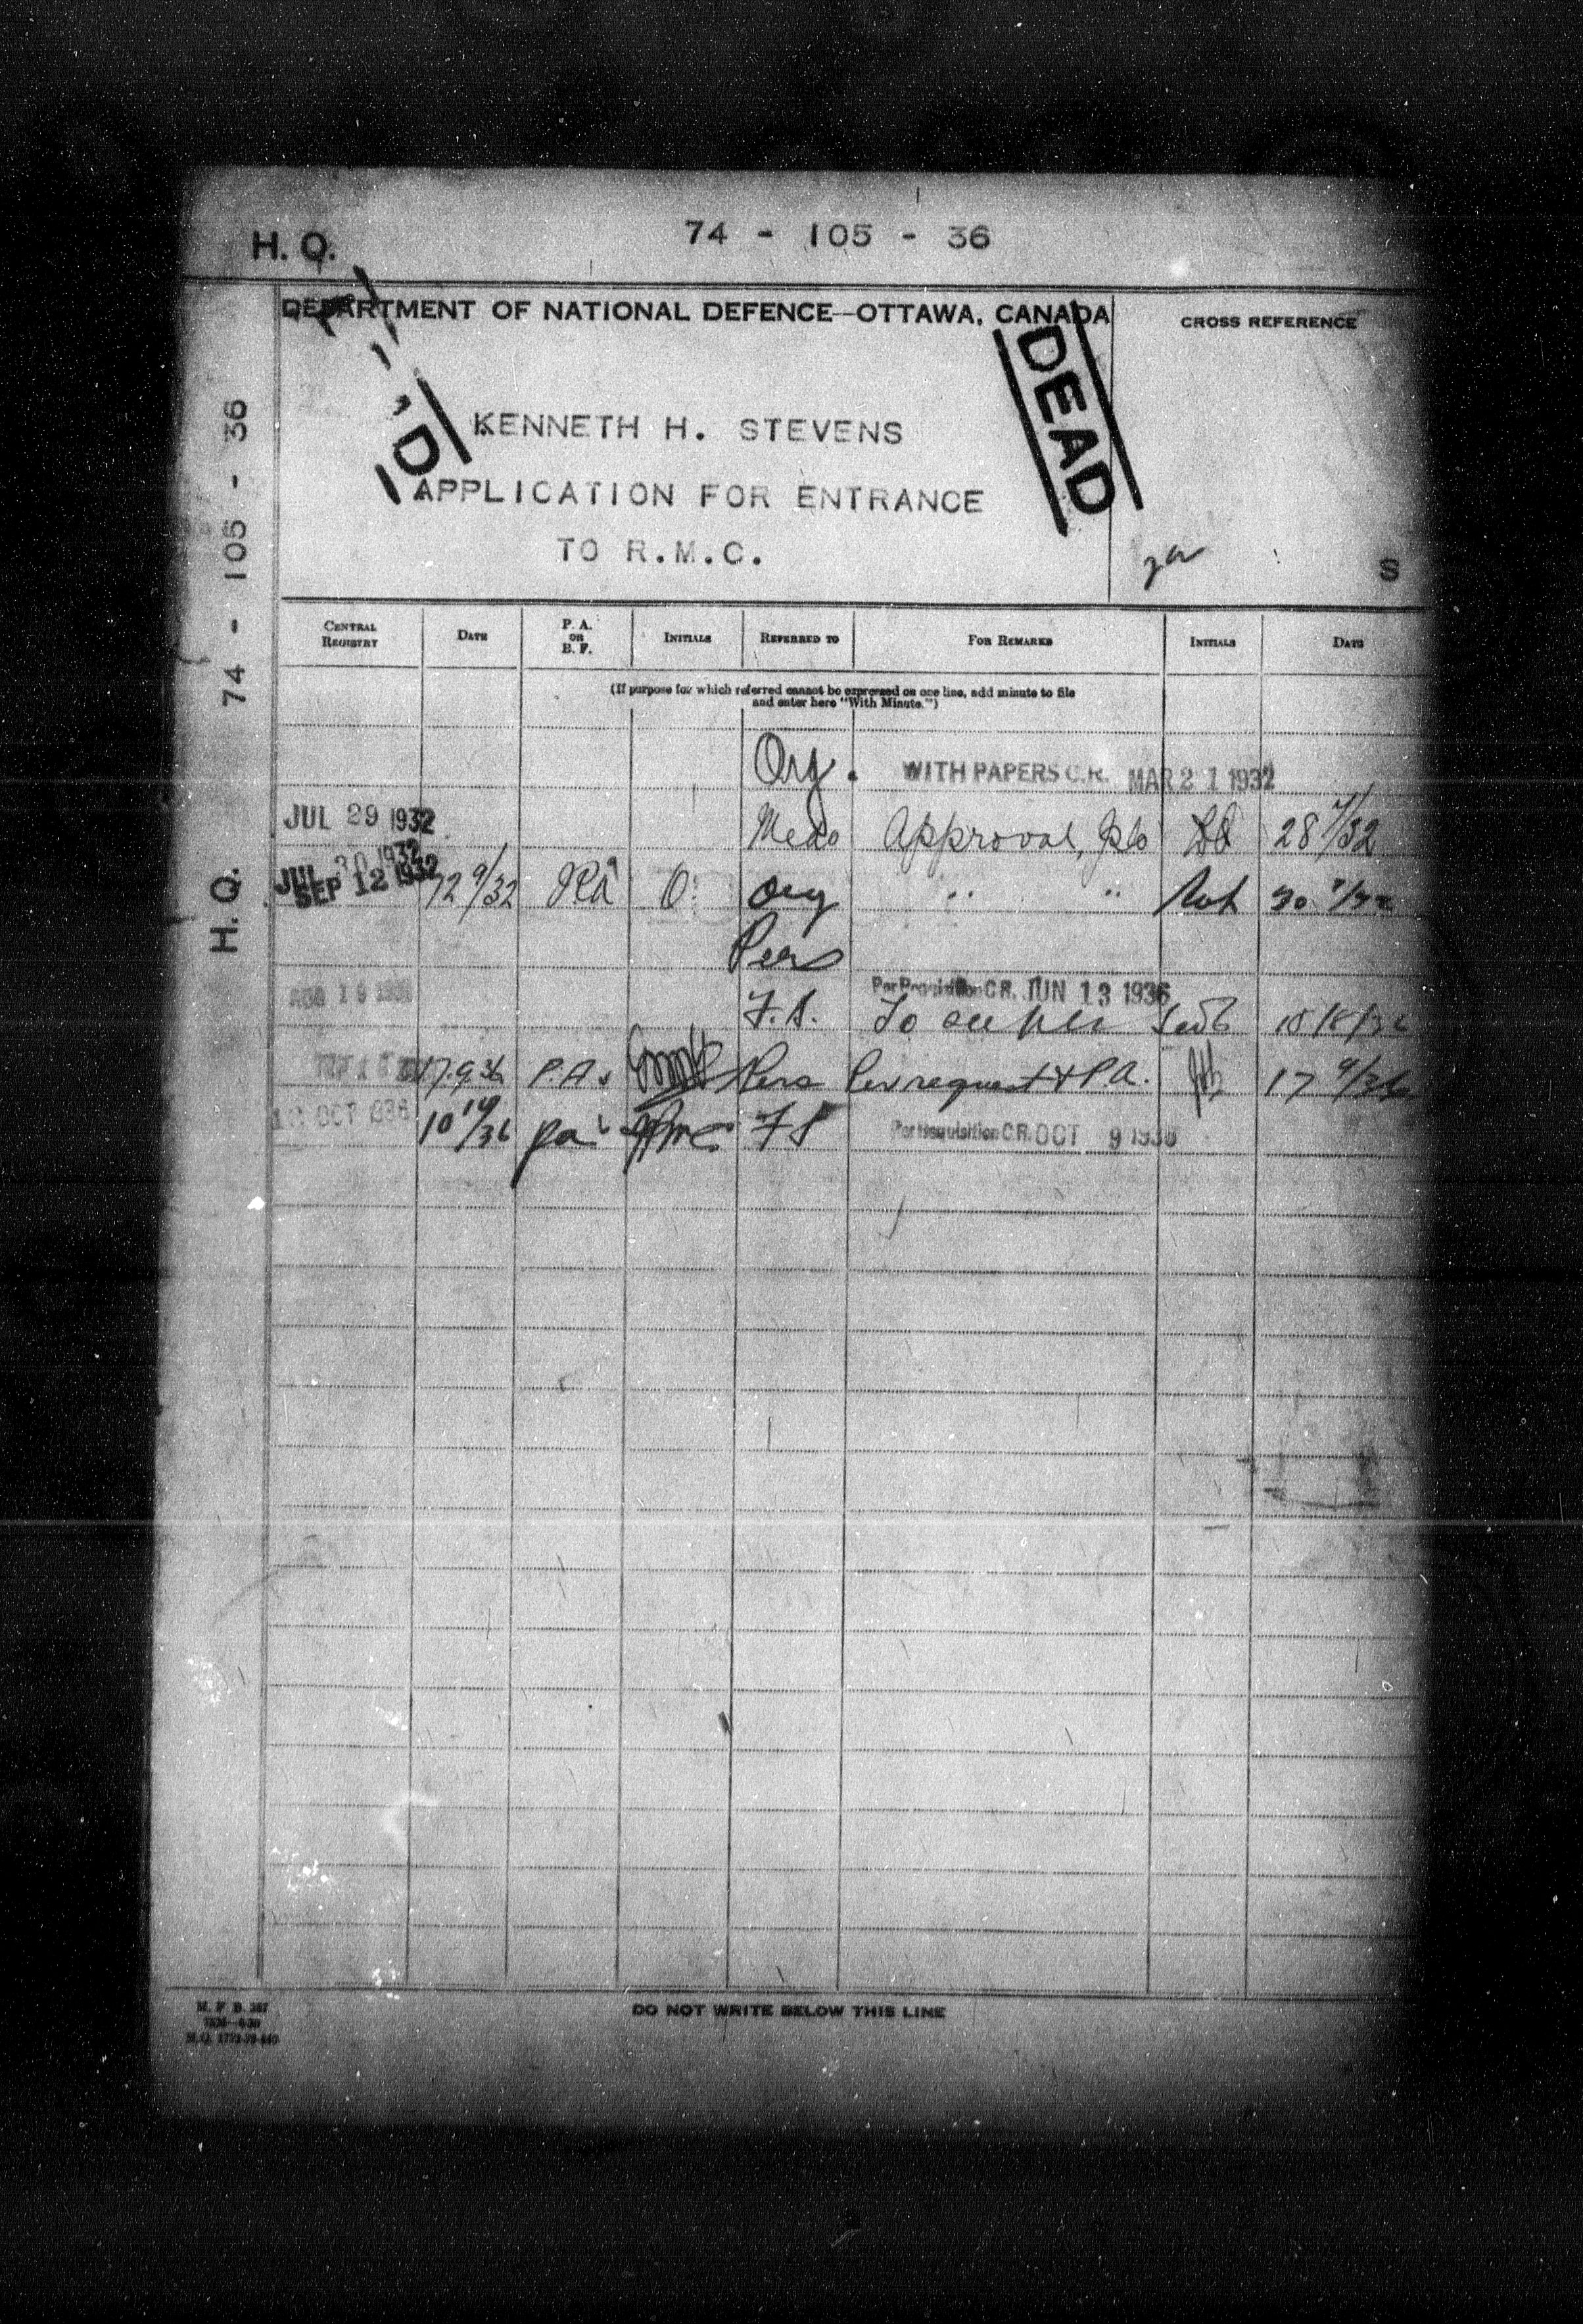 H. Q.
74 - 105 - 36
DEPARTMENT OF NATIONAL DEFENCE—OTTAWA, CANADA
CROSS REFERENCE
DEAD
'D
KENNETH H. STEVENS
APPLICATION FOR ENTRANCE
TO R.M.C.
S
H. Q. 74 - 105 - 36
CENTRAL REGISTRY DATE P. A. OR B. F. INITIALS REFERRED TO FOR REMARKS INITIALS DATE
(If purpose for which referred cannot be expressed on one line, add minute to file
and enter here "With Minute.")
Org. WITH PAPERS C.R. MAR 21 1932
JUL 29 1932 Approval, 28 7/32
JUL 30 1932
SEP 12 1932 12 9/32 Org " " 30 7/32
Pers
Per Requisition C.R. JUN 13 1936
F.S. To
17.9.36 P.A. Pers Per request & P.A. 17 9/36
OCT 1936 10 10/36 pa F S Per Requisition C.R. OCT 9 1936
DO NOT WRITE BELOW THIS LINE